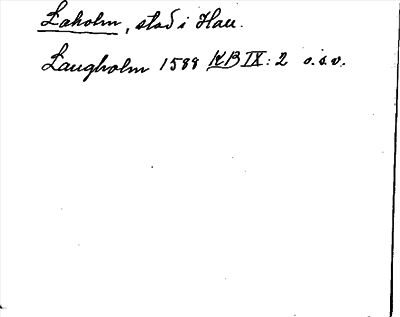 Laholm, stad i Hall.
Laugholm 1588 KB IX: 2 o.s.v.